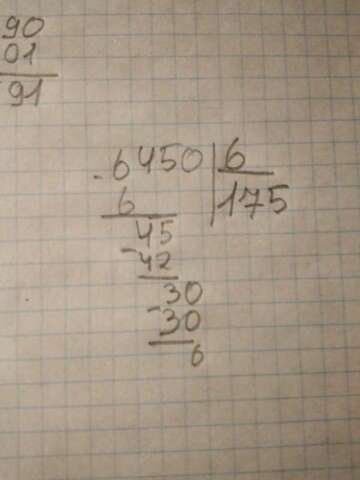 90
01
91
- 6450 6
6 175
45
- 42
30
- 30
6